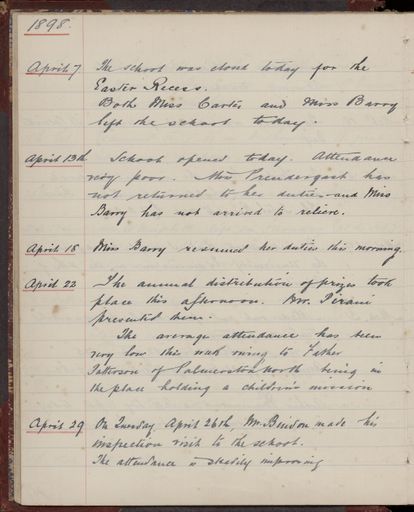 1898.
April 7 The school was closed today for the
Easter Recess.
Both Miss Carter and Miss Barry
left the school today.
April 13th School opened today. Attendance
very poor. Miss Prendergast has
not returned to her duties and Miss
Barry has not arrived to relieve.
April 18 Miss Barry resumed her duties this morning.
April 22 The annual distribution of prizes took
place this afternoon. Mr. Pirani
presented them.
The average attendance has been
very low this week owing to Father
Patterson of Palmerston North being in
the place holding a children's mission
April 29 On Tuesday April 26th, Mr. made his
inspection visit to the school.
The attendance is steadily improving